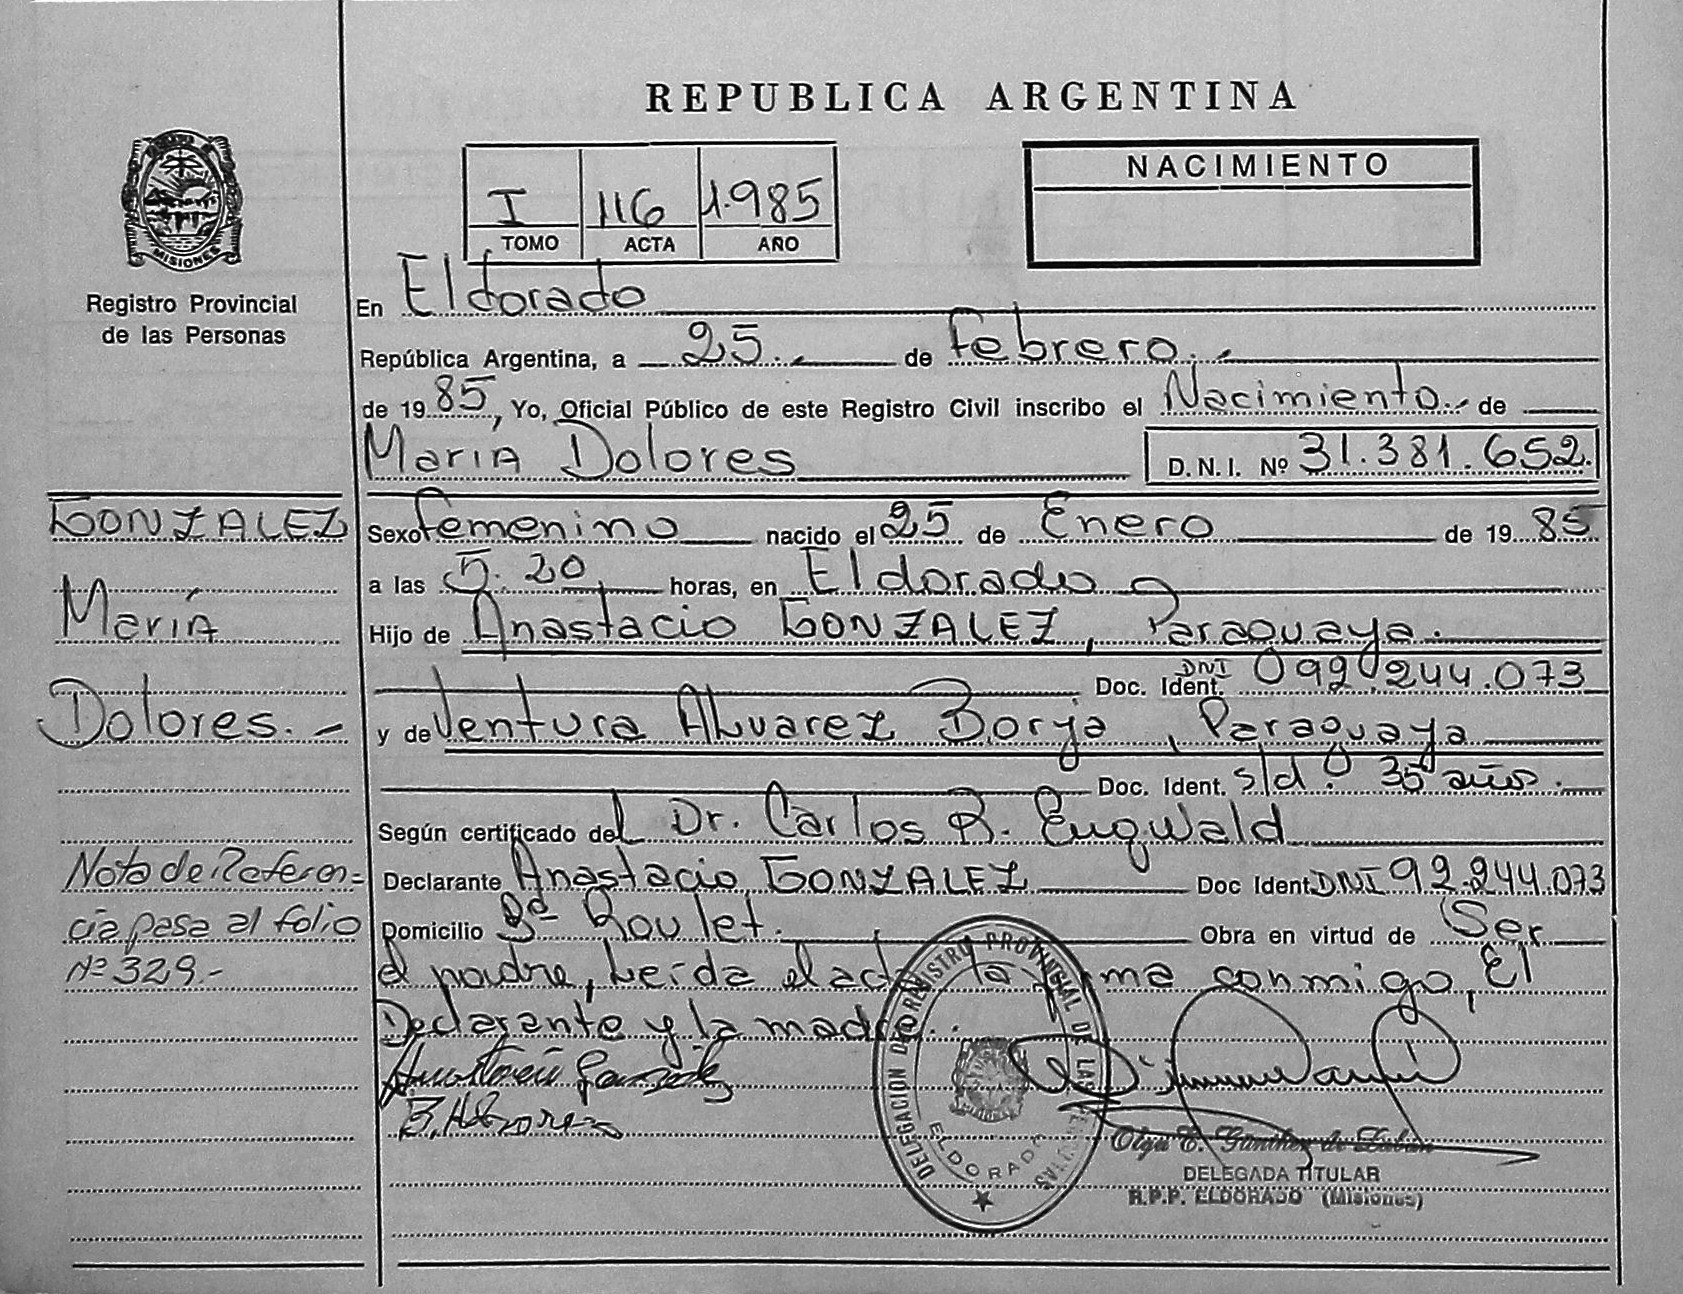 REPUBLICA ARGENTINA
MISIONES
Registro Provincial
de las Personas
I 116 1.985
TOMO ACTA AÑO
NACIMIENTO
En Eldorado
República Argentina, a 25 de Febrero.
de 1985, Yo, Oficial Público de este Registro Civil inscribo el Nacimiento de
María Dolores D.N.I. Nº 31.381.652.
GONZALEZ
María
Dolores.-
Nota de Referen=
cia pasa al folio
Nº 329.-
Sexo femenino nacido el 25 de Enero de 1985
a las 5.20 horas, en Eldorado
Hijo de Anastacio GONZALEZ, Paraguaya.
Doc. Ident. DNI 092.244.073
y de Ventura Alvarez Borja, Paraguaya
Doc. Ident. s/d. 35 años.
Según certificado del Dr. Carlos R.
Declarante Anastacio GONZALEZ Doc Ident. DNI 92.244.073
Domicilio Bº Roulet. Obra en virtud de Ser
el padre, Leída el acta la firma conmigo, El
Declarante y la madre..
DELEGACION DEL REGISTRO PROVINCIAL DE LAS PERSONAS
ELDORADO
Olga E.
DELEGADA TITULAR
R.P.P. ELDORADO (Misiones)